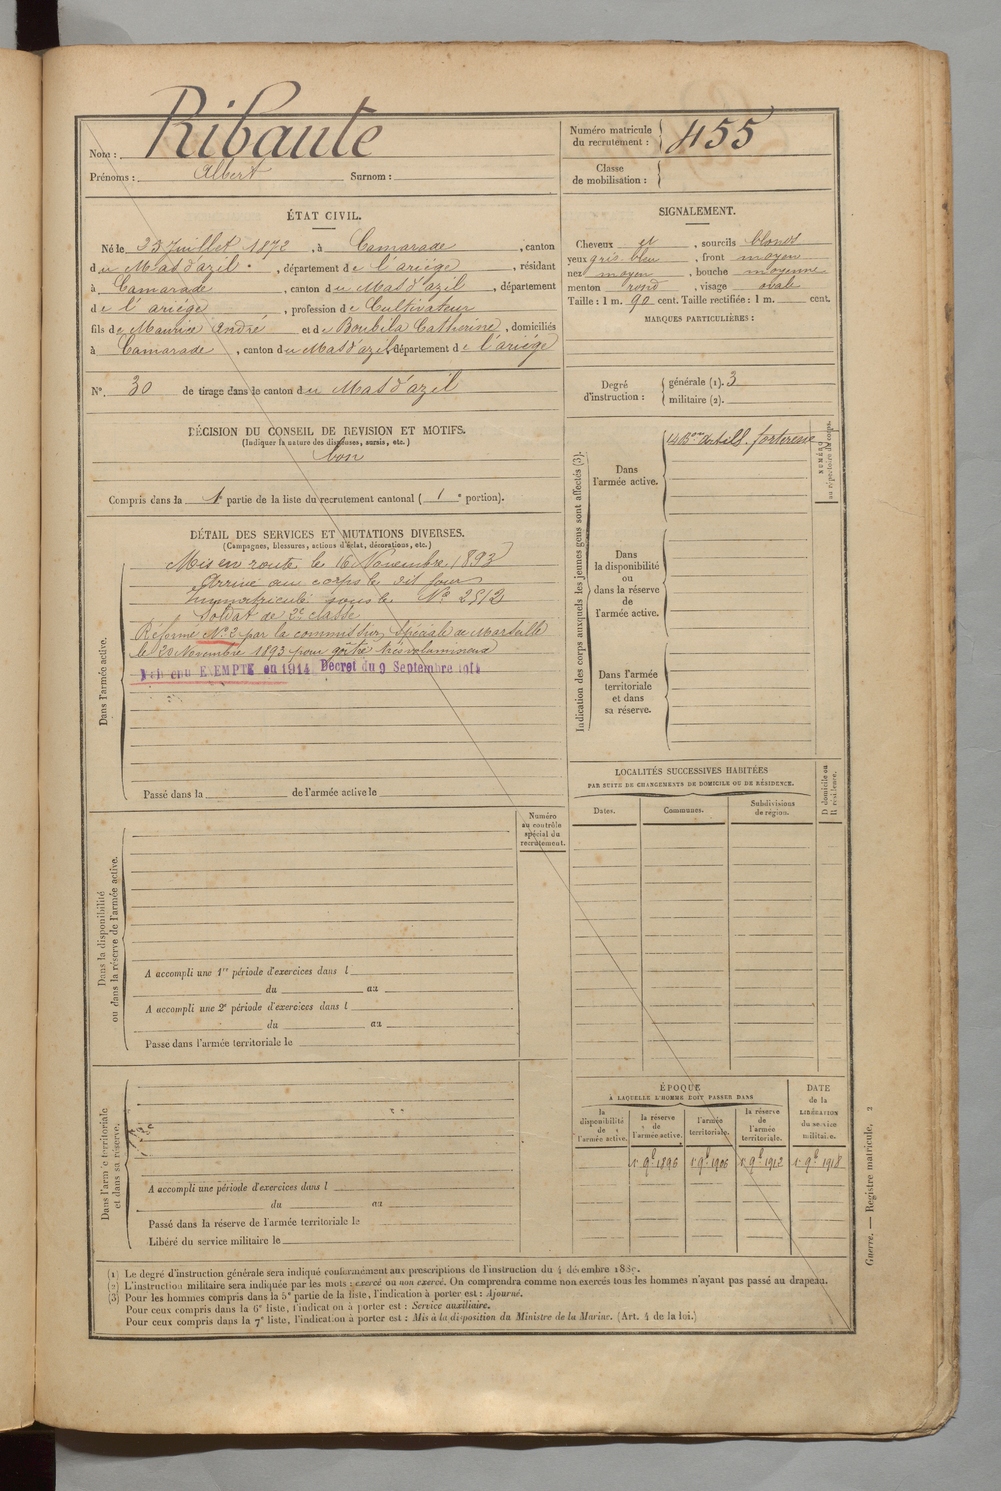 Nom : Ribaute
Prénoms : Albert Surnom :
Numéro matricule du recrutement : 455
Classe de mobilisation :
ÉTAT CIVIL.
Né le 23 Juillet 1872, à Camarade, canton
du Mas d'azil, département de l'ariège, résidant
à Camarade, canton du Mas d'azil, département
de l'ariège, profession de Cultivateur
fils de Maurice André et de Boubila Catherine, domiciliés
à Camarade, canton du Mas d'azil, département de l'ariège
N° 30 de tirage dans le canton du Mas d'azil
DÉCISION DU CONSEIL DE REVISION ET MOTIFS.
(Indiquer la nature des dispenses, sursis, etc.)
bon
Compris dans la 1e partie de la liste du recrutement cantonal (1 e portion).
SIGNALEMENT.
Cheveux et, sourcils blonds
yeux gris bleu, front moyen
nez moyen, bouche moyenne
menton rond, visage ovale
Taille : 1 m. 90 cent. Taille rectifiée : 1 m. cent.
MARQUES PARTICULIÈRES :
Degré d'instruction : générale (1). 3
militaire (2).
DÉTAIL DES SERVICES ET MUTATIONS DIVERSES.
(Campagnes, blessures, actions d'éclat, décorations, etc.)
Dans l'armée active.
Mis en route le 16 Novembre 1893
Arrivé au corps le dit jour
Immatriculé sous le No 2512
Soldat de 2e classe
Réformé No 2 par la commission spéciale de Marseille
le 20 Novembre 1893 pour goître très volumineux
EXEMPTÉ en 1914 Décret du 9 Septembre 1914
Passé dans la de l'armée active le
Indication des corps auxquels les jeunes gens sont affectés (3).
Dans l'armée active.
14 Bon Artill. forteresse
NUMÉRO au répertoire du corps.
Dans la disponibilité ou dans la réserve de l'armée active.
Dans l'armée territoriale et dans sa réserve.
LOCALITÉS SUCCESSIVES HABITÉES
PAR SUITE DE CHANGEMENTS DE DOMICILE OU DE RÉSIDENCE.
Dates. Communes. Subdivisions de région. D domicile ou R résidence.
Numéro au contrôle spécial du recrutement.
Dans la disponibilité ou dans la réserve de l'armée active.
A accompli une 1re période d'exercices dans l
du au
A accompli une 2e période d'exercices dans l
du au
Passé dans l'armée territoriale le
Dans l'armée territoriale et dans sa réserve.
A accompli une période d'exercices dans l
du au
Passé dans la réserve de l'armée territoriale le
Libéré du service militaire le
ÉPOQUE
A LAQUELLE L'HOMME DOIT PASSER DANS
la disponibilité de l'armée active. la réserve de l'armée active. l'armée territoriale. la réserve de l'armée territoriale.
DATE de la LIBÉRATION du service militaire.
1r 9bre 1896 1r 9bre 1906 1r 9bre 1912 1r 9bre 1918
(1) Le degré d'instruction générale sera indiqué conformément aux prescriptions de l'instruction du 4 décembre 1889.
(2) L'instruction militaire sera indiquée par les mots : exercé ou non exercé. On comprendra comme non exercés tous les hommes n'ayant pas passé au drapeau.
(3) Pour les hommes compris dans la 5e partie de la liste, l'indication à porter est : Ajourné.
Pour ceux compris dans la 6e liste, l'indication à porter est : Service auxiliaire.
Pour ceux compris dans la 7e liste, l'indication à porter est : Mis à la disposition du Ministre de la Marine. (Art. 4 de la loi.)
Guerre. — Registre matricule. 2